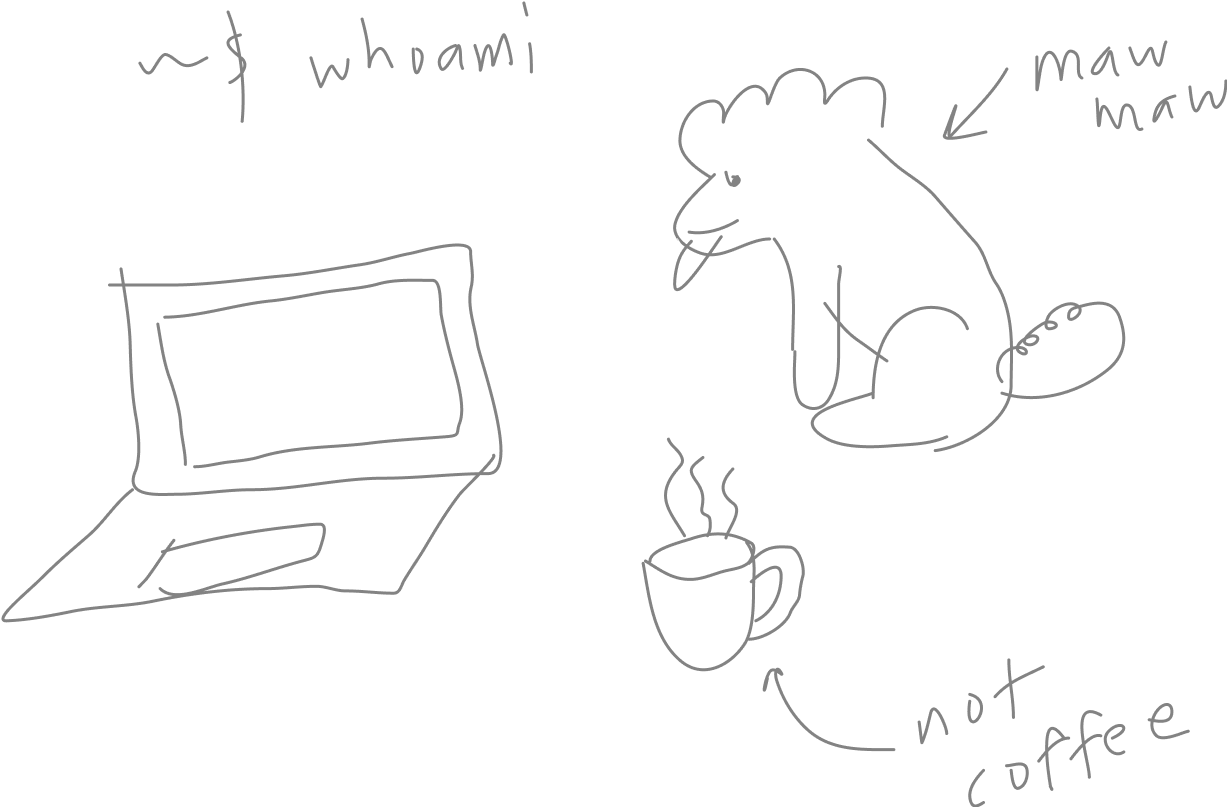 ~$ whoami
maw
maw
not
coffee